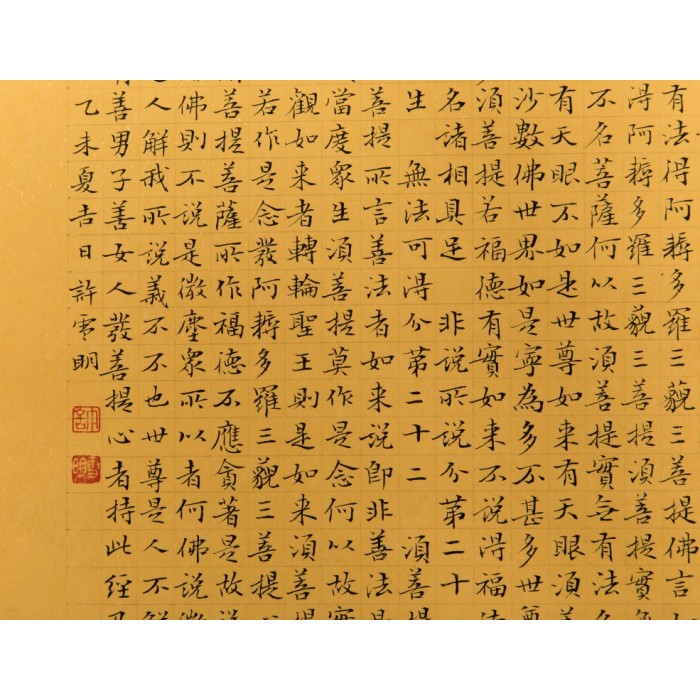 有法得阿耨多羅三藐三菩提佛言
得阿耨多羅三藐三菩提須菩提實
不名菩薩何以故須菩提實无有法名
有天眼不如是世尊如来有天眼須菩
沙數佛世界如是寧為多不甚多世尊
須菩提若福德有實如来不說得福
名諸相具足 非說所說分第二十
生 無法可得分第二十二 須菩提
菩提所言善法者如来說即非善法是
當度眾生須菩提莫作是念何以故實
觀如来者轉輪聖王則是如来須菩提
若作是念發阿耨多羅三藐三菩提
菩提菩薩所作福德不應貪著是故說
佛則不說是微塵眾所以者何佛說微
人解我所說義不不也世尊是人不解
善男子善女人發菩提心者持此經
乙未夏吉日許雪明